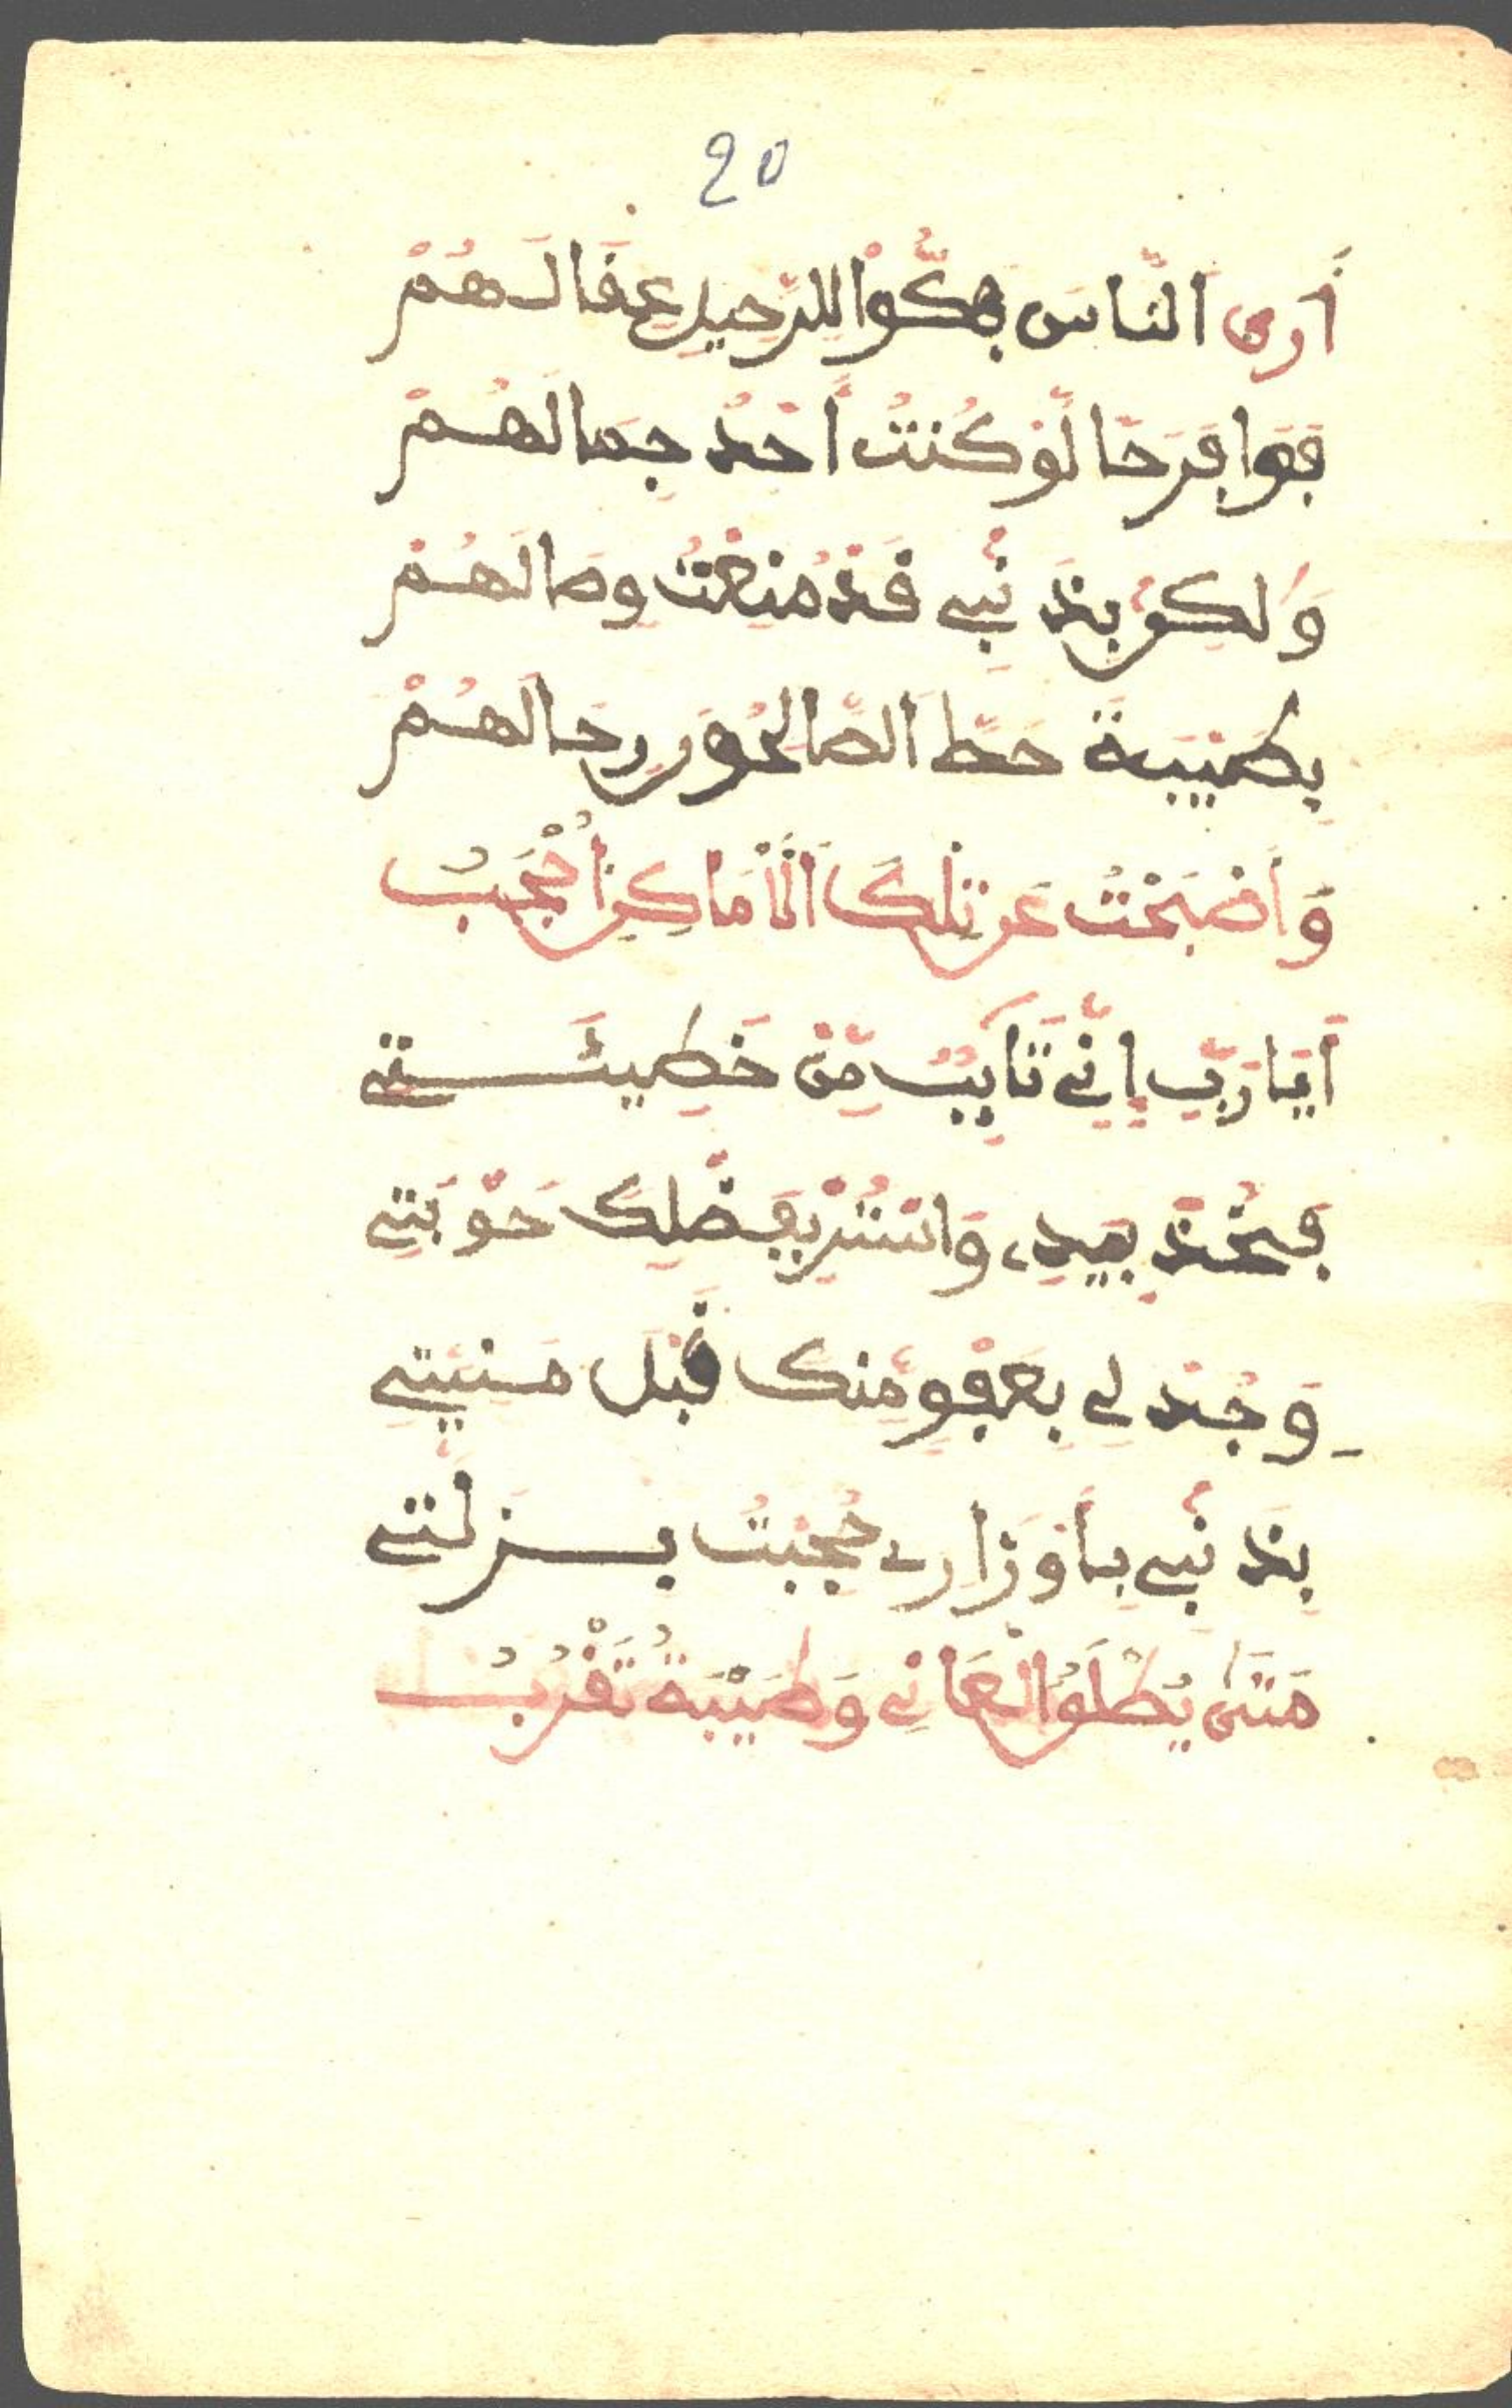 20
أَرَى اَلنَّاسَ فَكُّواْ لِلرَّحِيلِ عِقَالَهُمْ
فَوَا فَرَحَا لَّوْ كُنتُ أَحْدُ جِمَالَهُمْ
وَلَكِنْ بِذَنْبِى قَدْ مُنِعْتُ وِصَالَهُمْ
بِطَيْبَةَ حَطَّ اَلصَّالِحُونَ رِحَالَهُمْ
وَأَصْبَحْتُ عَن تِلْكَ اَلْأَمَاكِنِ أُحْجَبُ
أَيَا رَبِّ إِنِّى تَايِبٌ مِّنْ خَطِيئَتِى
فَخُذْ بِيَدِى وَاسْتُرْ بِفَضْلِكَ حَوْبَتِى
وَجُدْ لِى بِعَفْوٍ مِّنكَ قَبْلَ مَنِيَّتِى
بِذَنْبِى بِأَوْزَارِى حُجِبْتُ بِزَلَّتِى
مَتَى يُطْلَقُ الْعَانِى وَطَيْبَةُ تَقْرُبُ